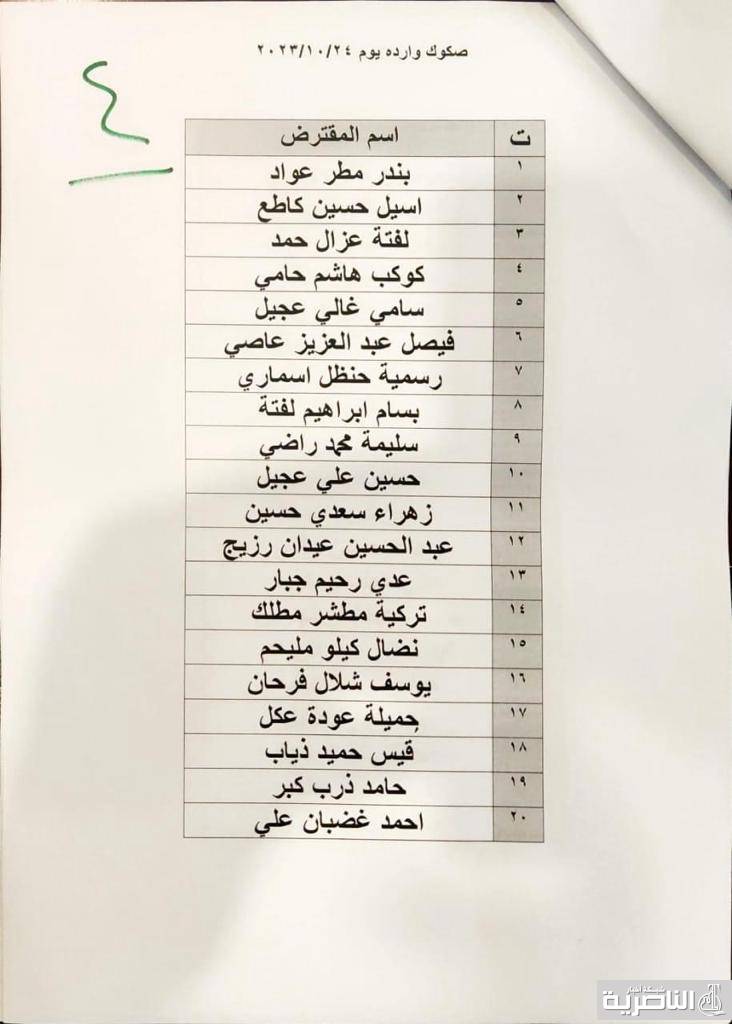 صكوك وارده يوم ٢٠٢٣/١٠/٢٤
٤
ت اسم المقترض
١ بندر مطر عواد
٢ اسيل حسين كاطع
٣ لفتة عزال حمد
٤ كوكب هاشم حامي
٥ سامي غالي عجيل
٦ فيصل عبد العزيز عاصي
٧ رسمية حنظل اسماري
٨ بسام ابراهيم لفتة
٩ سليمة محمد راضي
١٠ حسين علي عجيل
١١ زهراء سعدي حسين
١٢ عبد الحسين عيدان رزيج
١٣ عدي رحيم جبار
١٤ تركية مطشر مطلك
١٥ نضال كيلو مليحم
١٦ يوسف شلال فرحان
١٧ جميلة عودة عكل
١٨ قيس حميد ذياب
١٩ حامد ذرب كبر
٢٠ احمد غضبان علي
شبكة أخبار
الناصرية